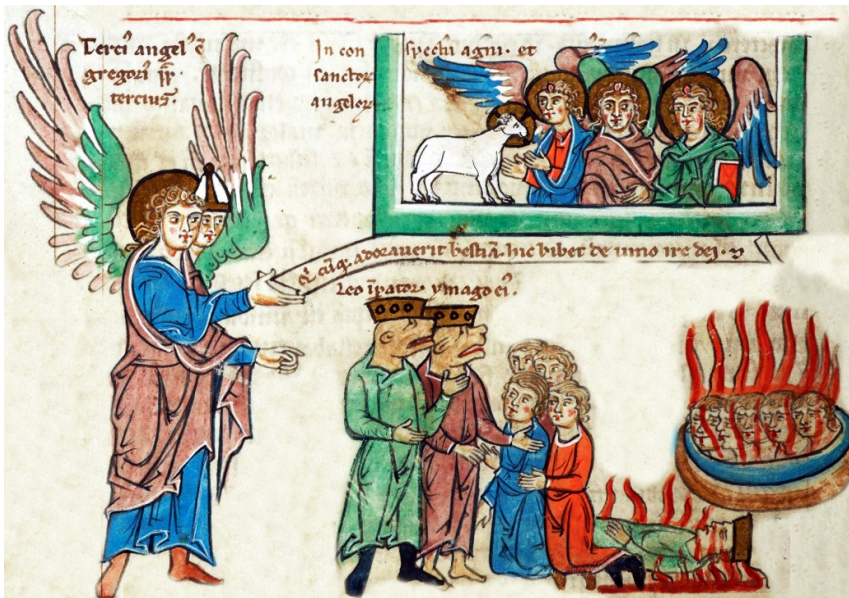 Terci' angel' ē
gregori' pp̄
terci'.
In con spectu agni. et
sanctor
angelor
adoraverit bestiā. hic bibet de uino ire dei.
leo īpator ymago ei'.